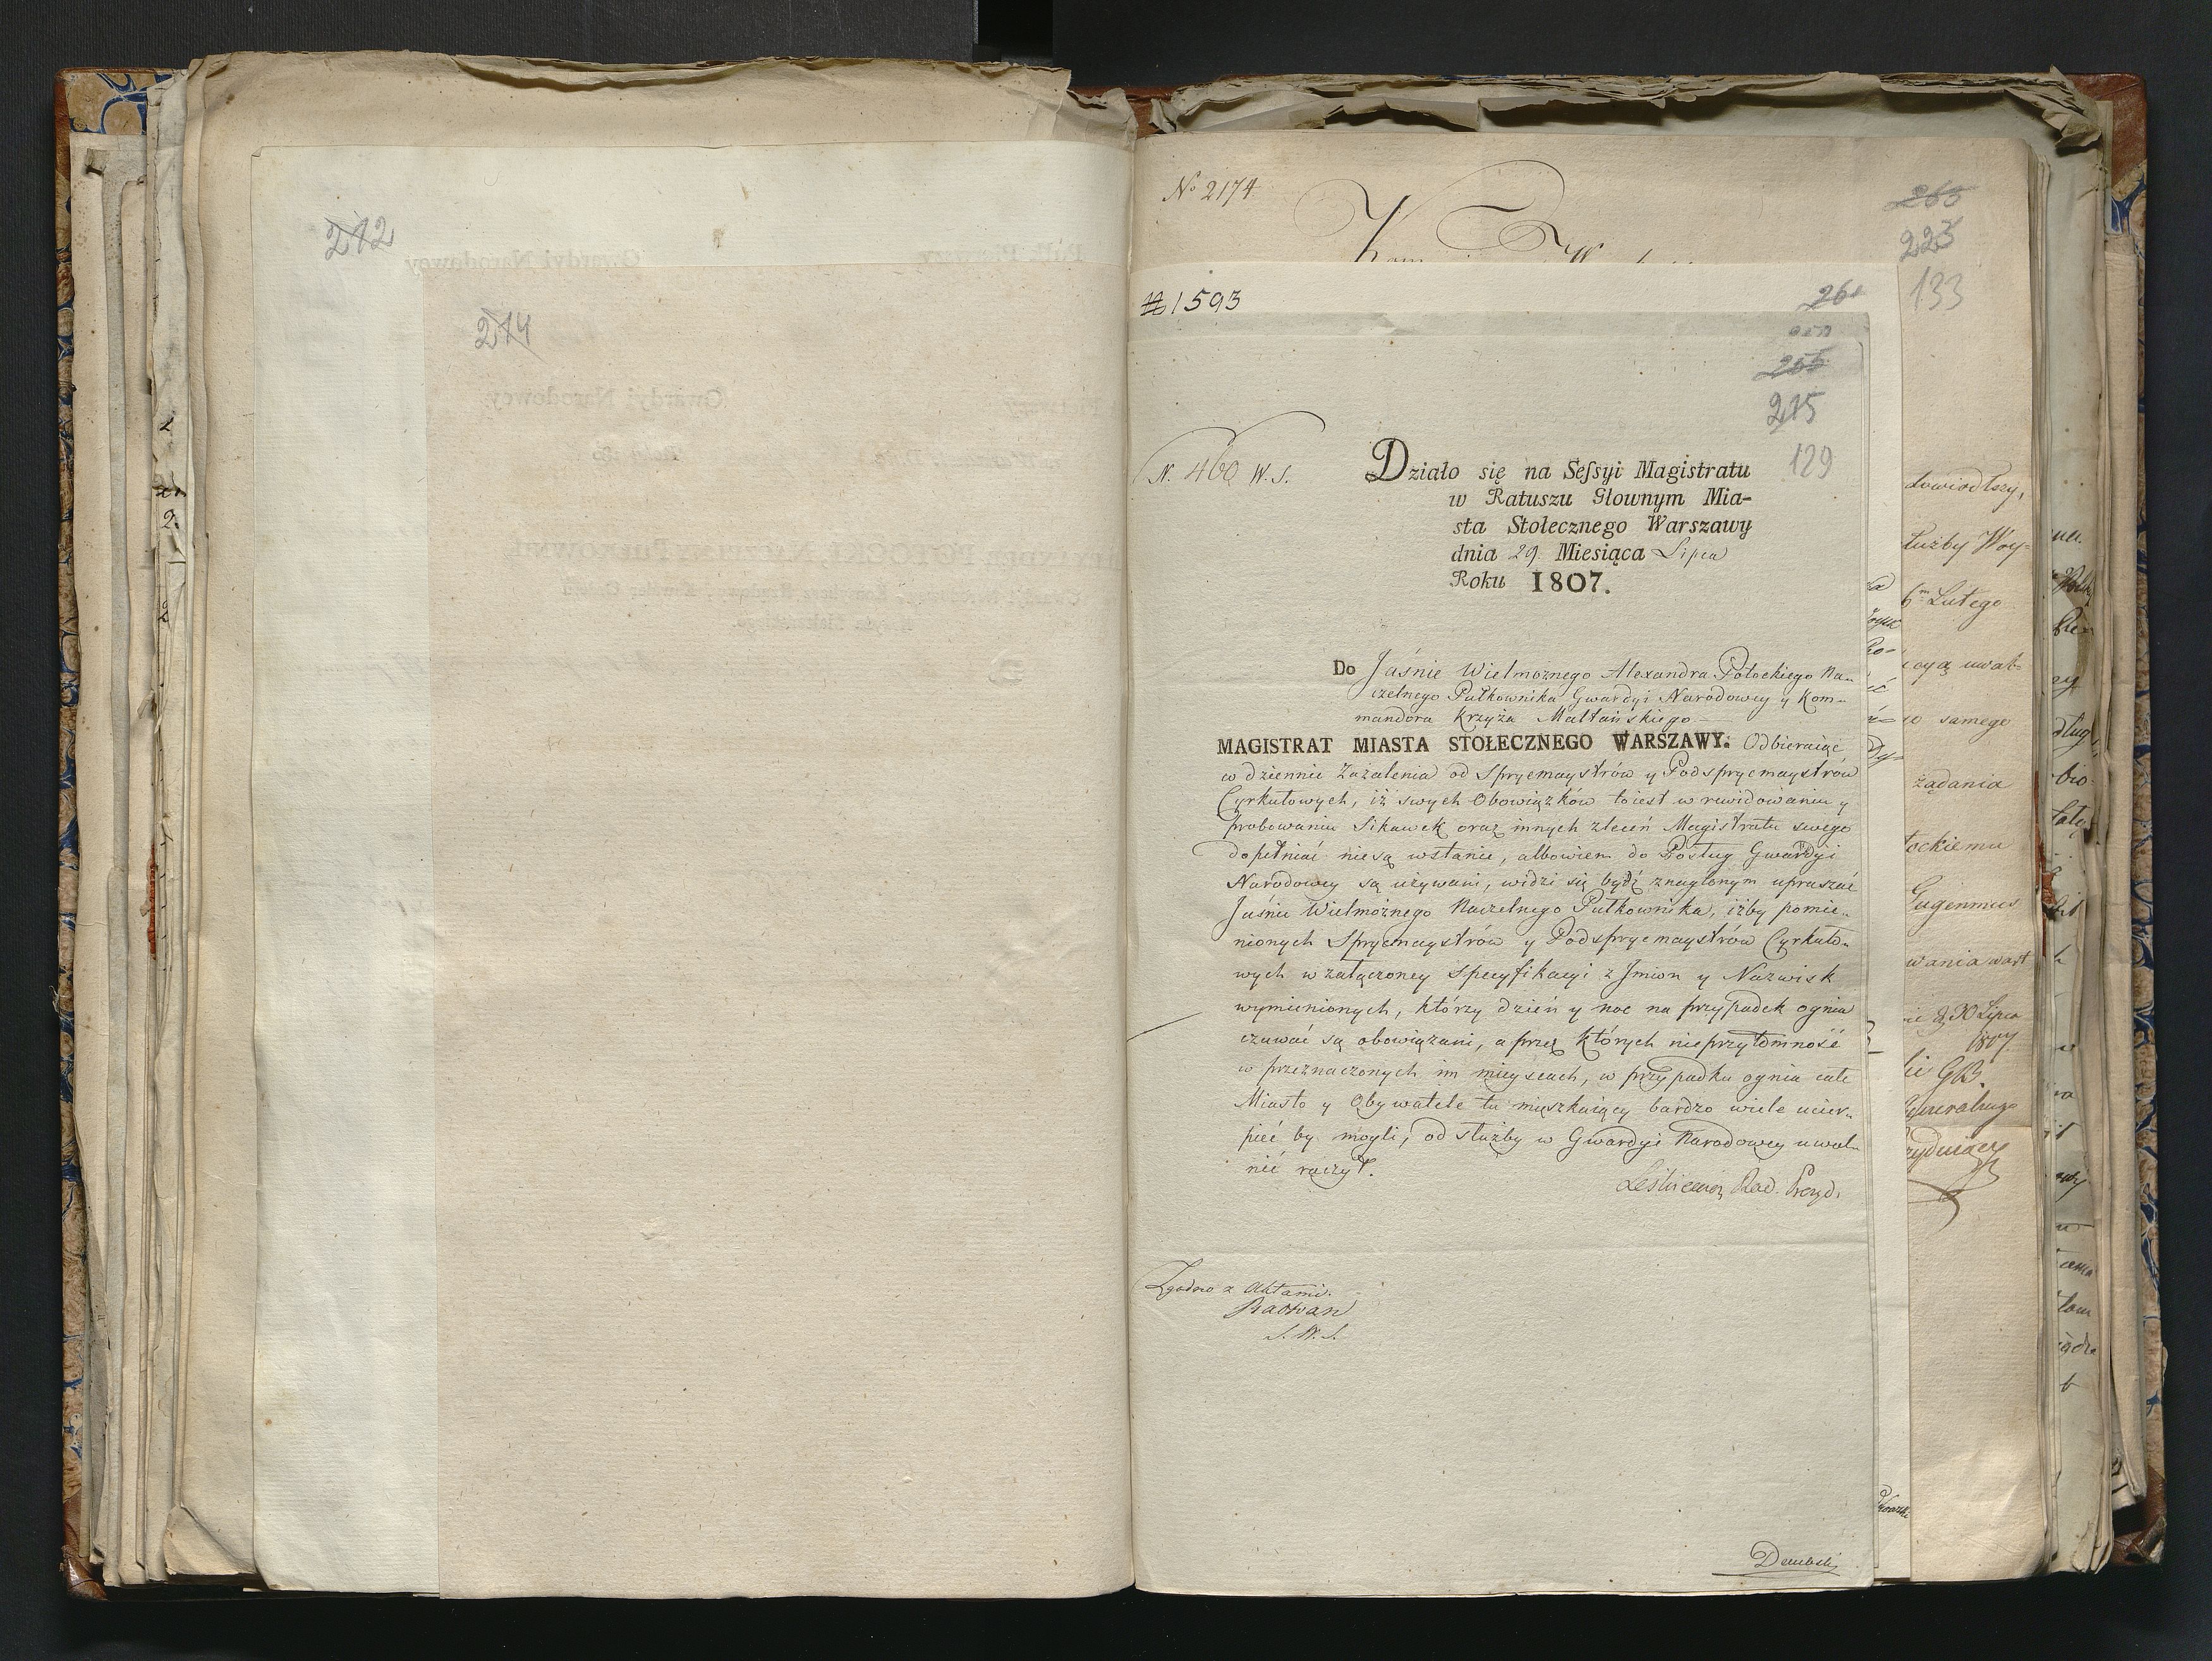 212
214
No 2174
260
223
133
1593
261
255
215
129
N. 460 W. S.
Działo się na Sessyi Magistratu
w Ratuszu Głownym Mia-
sta Stołecznego Warszawy
dnia 29. Miesiąca Lipca
Roku 1807.
Do Jaśnie Wielmożnego Alexandra Potockiego Na-
czelnego Pułkownika Gwardyi Narodowey y Kom-
mandora Krzyża Maltańskiego
MAGISTRAT MIASTA STOŁECZNEGO WARSZAWY. Odbieraiąc
w dziennie Zażalenia od Sprycmaystrów y Podsprycmaystrów
Cyrkułowych, iż swych Obowiązków toiest w rewidowaniu y
probowaniu Sikawek oraz innych zleceń Magistratu swego
dopełniać nie są wstanie, albowiem do Posług Gwardyi
Narodowey są używani, widzi się bydź znaglonym upraszać
Jaśnie Wielmożnego Naczelnego Pułkownika, iżby pomie-
nionych Sprycmaystrów y Podsprycmaystrów Cyrkuło-
wych w załączoney Specyfikacyi z Jmion y Nazwisk
wymienionych, którzy dzień y noc na przypadek ognia
czuwać są obowiązani, a przez których nieprzytomność
w przeznaczonych im mieyscach, w przypadku ognia całe
Miasto y Obywatele tu mięszkaiący bardzo wiele ucier-
pieć by mogli, od służby w Gwardyi Narodowey uwol-
nić raczył.
Rad. Prezyd.
Zgodno z Aktami.
Radwan
S. W. S.
Dembski
służby Woy-
6m Lutego
samego
żądania
tockiemu
Eugenmus
30 Lipca
1807